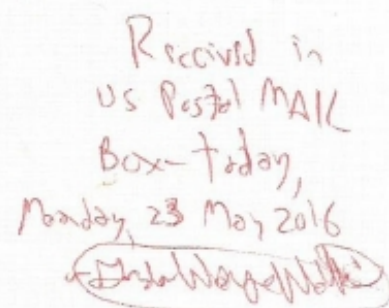 Received in
US Postal MAIL
Box-Today,
Monday, 23 May 2016